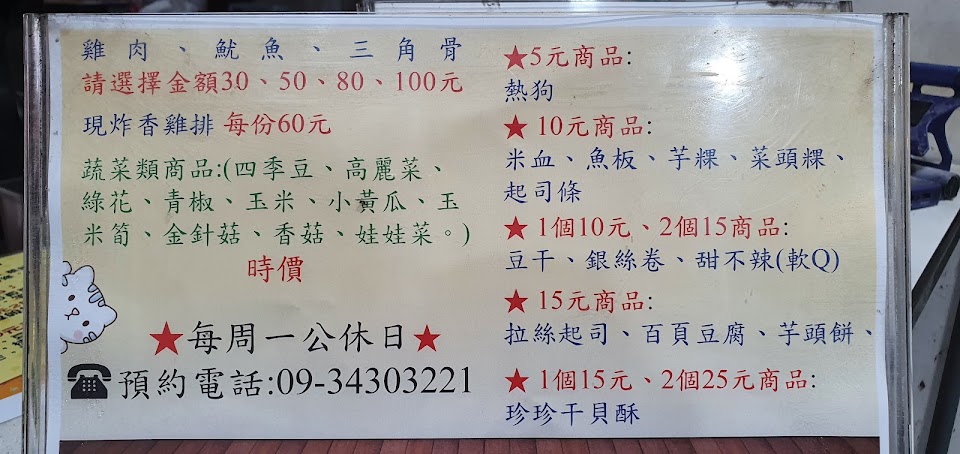 雞肉、魷魚、三角骨
請選擇金額30、50、80、100元
現炸香雞排 每份60元
蔬菜類商品:(四季豆、高麗菜、
綠花、青椒、玉米、小黃瓜、玉
米筍、金針菇、香菇、娃娃菜。)
時價
★每周一公休日★
☎預約電話:09-34303221
★5元商品:
熱狗
★ 10元商品:
米血、魚板、芋粿、菜頭粿、
起司條
★ 1個10元、2個15商品:
豆干、銀絲卷、甜不辣(軟Q)
★ 15元商品:
拉絲起司、百頁豆腐、芋頭餅、
★ 1個15元、2個25元商品:
珍珍干貝酥